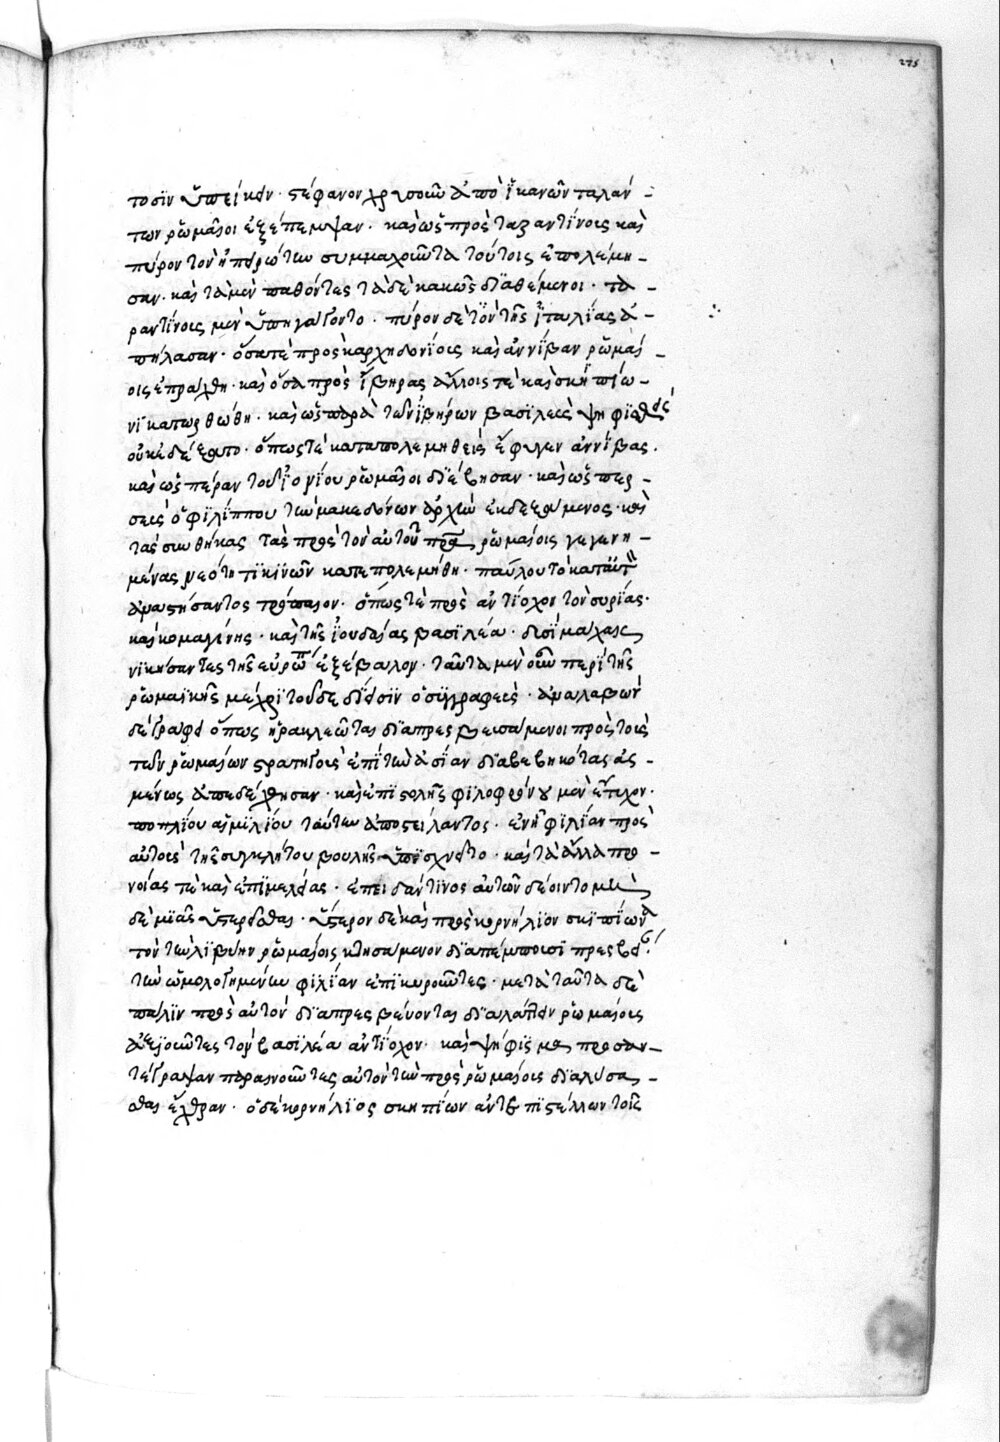 275
τοσϊν ὑπείκειν· στέφανον χρυσοῦν ἀπὸ ἱκανῶν ταλάν
των ῥωμαῖοι ἐξέπεμψαν· καὶ ὡς πρὸς ταραντίνους καὶ
πύρον τὸν ἠπειρώτην συμμαχοῦντα τούτοις ἐπολέμη-
σαν· καὶ τὰ μὲν παθόντες τὰ δὲ κακῶς διαθέμενοι· τα-
ραντίνους μὲν ὑπηγάγοντο· πύρον δὲ τὸν τῆς ἰταλίας ἀ-
πήλασαν· ὅσα τὲ πρὸς καρχηδονίους καὶ ἀννίβαν ῥωμαί-
οις ἐπράχθη· καὶ ὅσα πρὸς ἴβηρας ἄλλοις τὲ καὶ σκηπίω-
νι κατωρθώθη· καὶ ὡς παρὰ τῶν ἰβήρων βασιλεὺς ψηφισθεὶς
οὐκ ἐδέξατο· ὅπως τὲ καταπολεμηθεὶς ἔφυγεν ἀννίβας.
καὶ ὡς πέραν τοῦ ἰονίου ῥωμαῖοι διέβησαν· καὶ ὡς περ-
σεὺς ὁ φιλίππου τὴν μακεδόνων ἀρχὴν ἐκδεξάμενος· καὶ
τὰς συνθήκας τὰς πρὸς τὸν αὐτοῦ πρα ῥωμαίοις γεγενη-
μένας νεότητι κινῶν κατεπολεμήθη· παύλου τὸ κατ αὐτοῦ
ἀναστήσαντος τρόπαιον· ὅπως τὲ πρὸς ἀντίοχον τὸν συρίας·
καὶ κομαγίνης· καὶ τῆς ἰουδαίας βασιλέα· δυσὶ μάχαις
νικήσαντες τῆς εὐρώπ ἐξέβαλον· ταῦτα μὲν οὖν περὶ τῆς
ῥωμαϊκῆς μέχρι τοῦδε δίεισιν ὁ συγγραφεύς· ἀναλαβὼν
δὲ γράφει ὅπως ἡρακλεῶται διαπρεσβευσάμενοι πρὸς τοὺς
τῶν ῥωμαίων στρατηγοὺς ἐπὶ τὴν ἀσίαν διαβεβηκότας ἀσ-
μένως ἀπεδέχθησαν· καὶ ἐπιστολῆς φιλοφρόνου μὲν ἔτυχον·
ποπλίου αἰμιλίου ταύτην ἀποστείλαντος· ἐν ἧ φιλίαν πρὸς
αὐτοὺς τῆς συγκλήτου βουλῆς ὑπισχνεῖτο· καὶ τὰ ἄλλα προ-
νοίας τὲ καὶ ἐπιμελείας· ἐπειδάν τινος αὐτῶν δέοιντο μη
δὲ μιᾶς ὑστερεῖσθαι· ὕστερον δὲ καὶ πρὸς κορνήλιον σκιπίωνα
τὸν τὴν λιβύην ῥωμαίοις κτησάμενον διαπέμπουσι πρέσβεις·
τὴν ὡμολογημένην φιλίαν ἐπικυροῦντες· μετὰ ταῦτα δὲ
πάλιν πρὸς αὐτὸν διαπρεσβεύονται διαλάττειν ῥωμαίοις
ἀξιοῦντες τὸν βασιλέα ἀντίοχον· καὶ ψήφισμα προσαν-
τέγραψαν παραινοῦντες αὐτὸν τὴν πρὸς ῥωμαίους διαλύσα-
σθαι ἔχθραν· ὁ δὲ κορνήλιος σκηπίων ἀντεπιστέλλων τοῖς